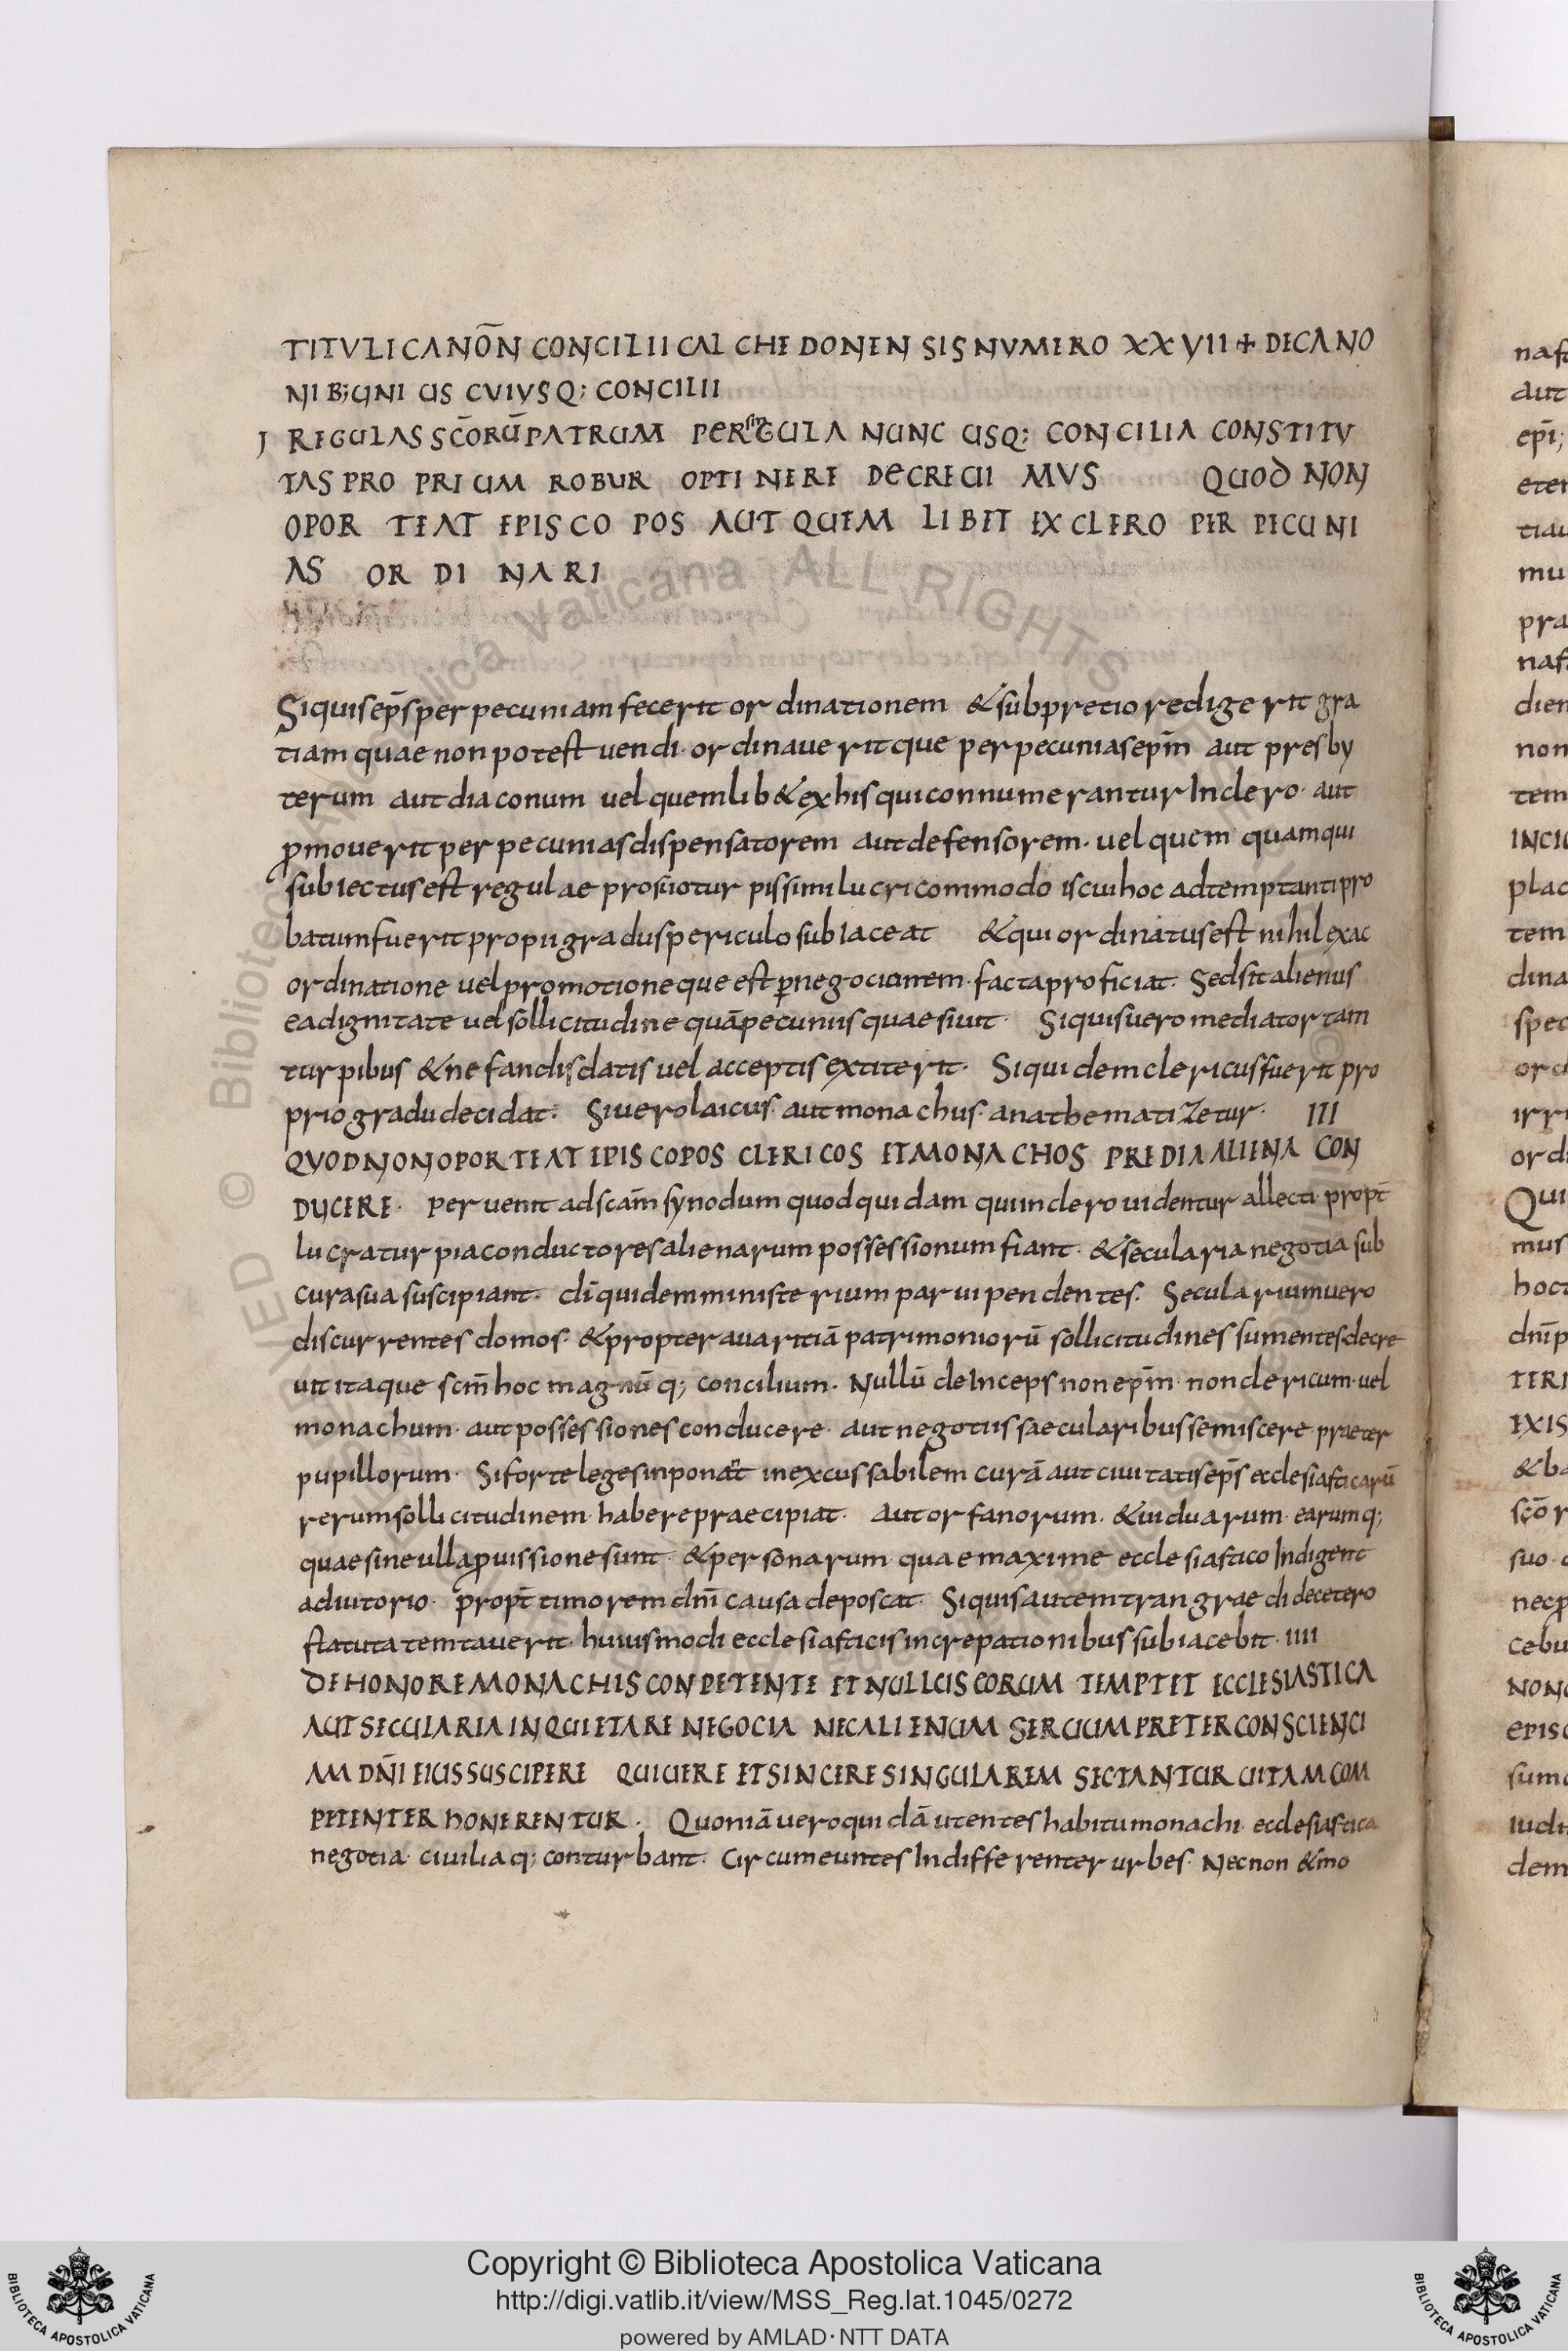 TITVLI CANOÑ CONCILII CALCHEDONENSIS NVMERO XXVII + DE CANO
NIB; UNI US CVIVSQ; CONCILII
I REGULAS SCŌRŪ PATRUM PER SINGULA NUNC USQ; CONCILIA CONSTITV
TAS PROPRIUM ROBUR OPTINERE DECREUIMVS QUOD NON
OPORTEAT EPISCOPOS AUT QUEMLIBET EX CLERO PER PECUNI
AS ORDINARI
Siquis ep̄s per pecuniam fecerit ordinationem & sub pretio redigerit gra
tiam quae non potest uendi. ordinaueritque per pecunias ep̄m aut presby
terum aut diaconum uel quemlib& ex his qui connumerantur In clero. aut
p̄mouerit per pecunias dispensatorem aut defensorem. uel quem quam qui
subiectus est regulae pissimi lucri commodo is cui hoc adtemptanti pro
batum fuerit propii gradus periculo subIaceat & qui ordinatus est nihil ex ac
ordinatione uel promotione que est p̄ negocianem. facta proficiat. Sed sit alienus
ea dignitate uel sollicitudine quā pecuniis quaesiuit. Siquis uero mediator tam
turpibus & nefandis datis uel acceptis extiterit. Siquidem clericus fuerit pro
prio gradu decidat. Si uero laicus aut monachus. anathematiZetur. III
QVOD NON OPORTEAT EPISCOPOS CLERICOS ET MONACHOS PREDIA ALIENA CON
DUCERE. peruenit ad scām synodum quod quidam qui in clero uidentur allecti propt̄
lucra turpia conductores alienarum possessionum fiant. & secularia negotia sub
cura sua suscipiant. dī quidem ministerium parui pendentes. Secularium uero
discurrentes domos. & propter auaritiā patrimoniorū sollicitudines sumentes decre
uit itaque scm̄ hoc magnū q; concilium. Nullū deInceps non ep̄m. non clericum. uel
monachum. aut possessiones conducere. aut negotiis saecularibus se miscere praeter
pupillorum. Si forte leges inponant inexcussabilem curā aut ciuitatis ep̄s ecclesiasticarū
rerum sollicitudinem. habere praecipiat. Aut orfanorum. & uiduarum. earumq;
quae sine ulla p̄uissione sunt. & personarum. quae maxime ecclesiastico Indigent
adiutorio. propt̄ timorem dnī causa deposcat. Siquis autem trangraedi decetero
statuta temtauerit. huiusmodi ecclesiasticis increpationibus subiacebit. IIII
DE HONORE MONACHIS CONPETENTE ET NULLUS EORUM TEMPTET ECCLESIASTICA
AUT SECULARIA INQUIETARE NEGOCIA NEC ALIENUM SERUUM PRETER CONSCIENCI
AM DÑI EIUS SUSCIPERE QUI UERE ET SINCERE SINGULAREM SECTANTUR UITAM COM
PETENTER HONERENTUR. Quoniā uero quidā utentes habitu monachi. ecclesiastica
negotia. ciuiliaq; conturbant. Circumeuntes Indifferenter urbes. Necnon & mo
Copyright © Biblioteca Apostolica Vaticana
http://digi.vatlib.it/view/MSS_Reg.lat.1045/0272
powered by AMLAD·NTT DATA
BIBLIOTECA APOSTOLICA VATICANA
BIBLIOTECA APOSTOLICA VATICANA